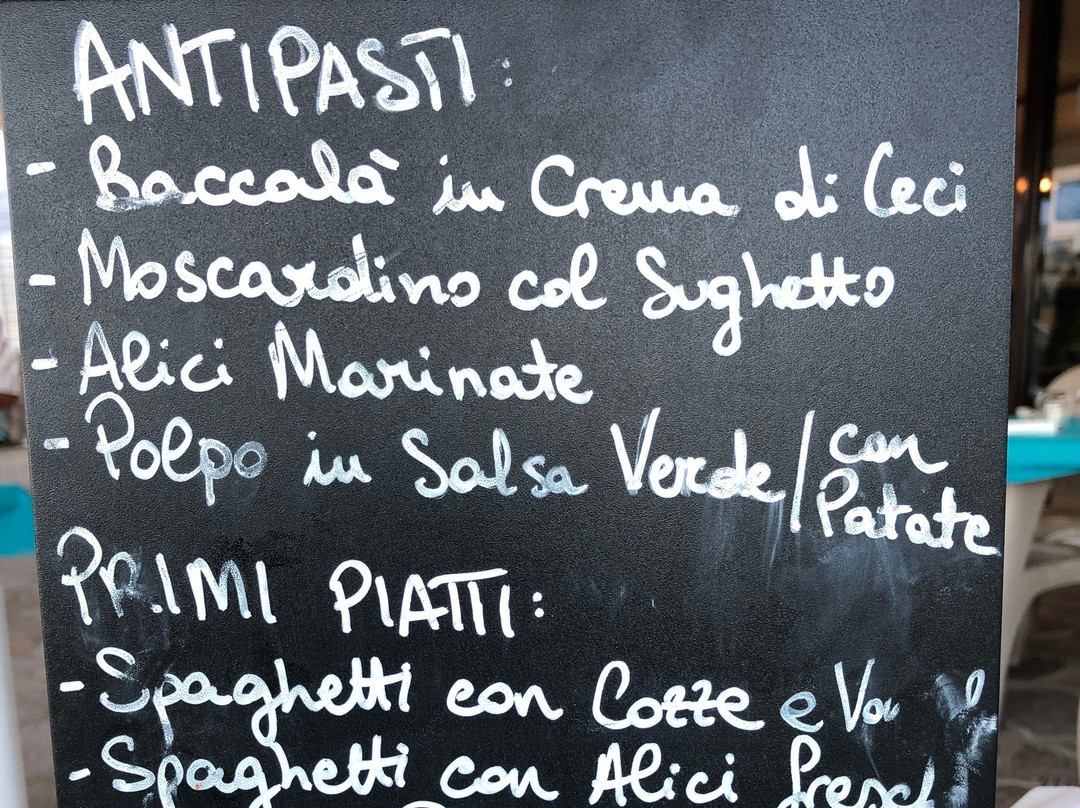 ANTIPASTI:
- Baccalà in Crema di Ceci
- Moscardino col Sughetto
- Alici Marinate
- Polpo in Salsa Verde/con Patate
PRIMI PIATTI:
- Spaghetti con Cozze e
- Spaghetti con Alici